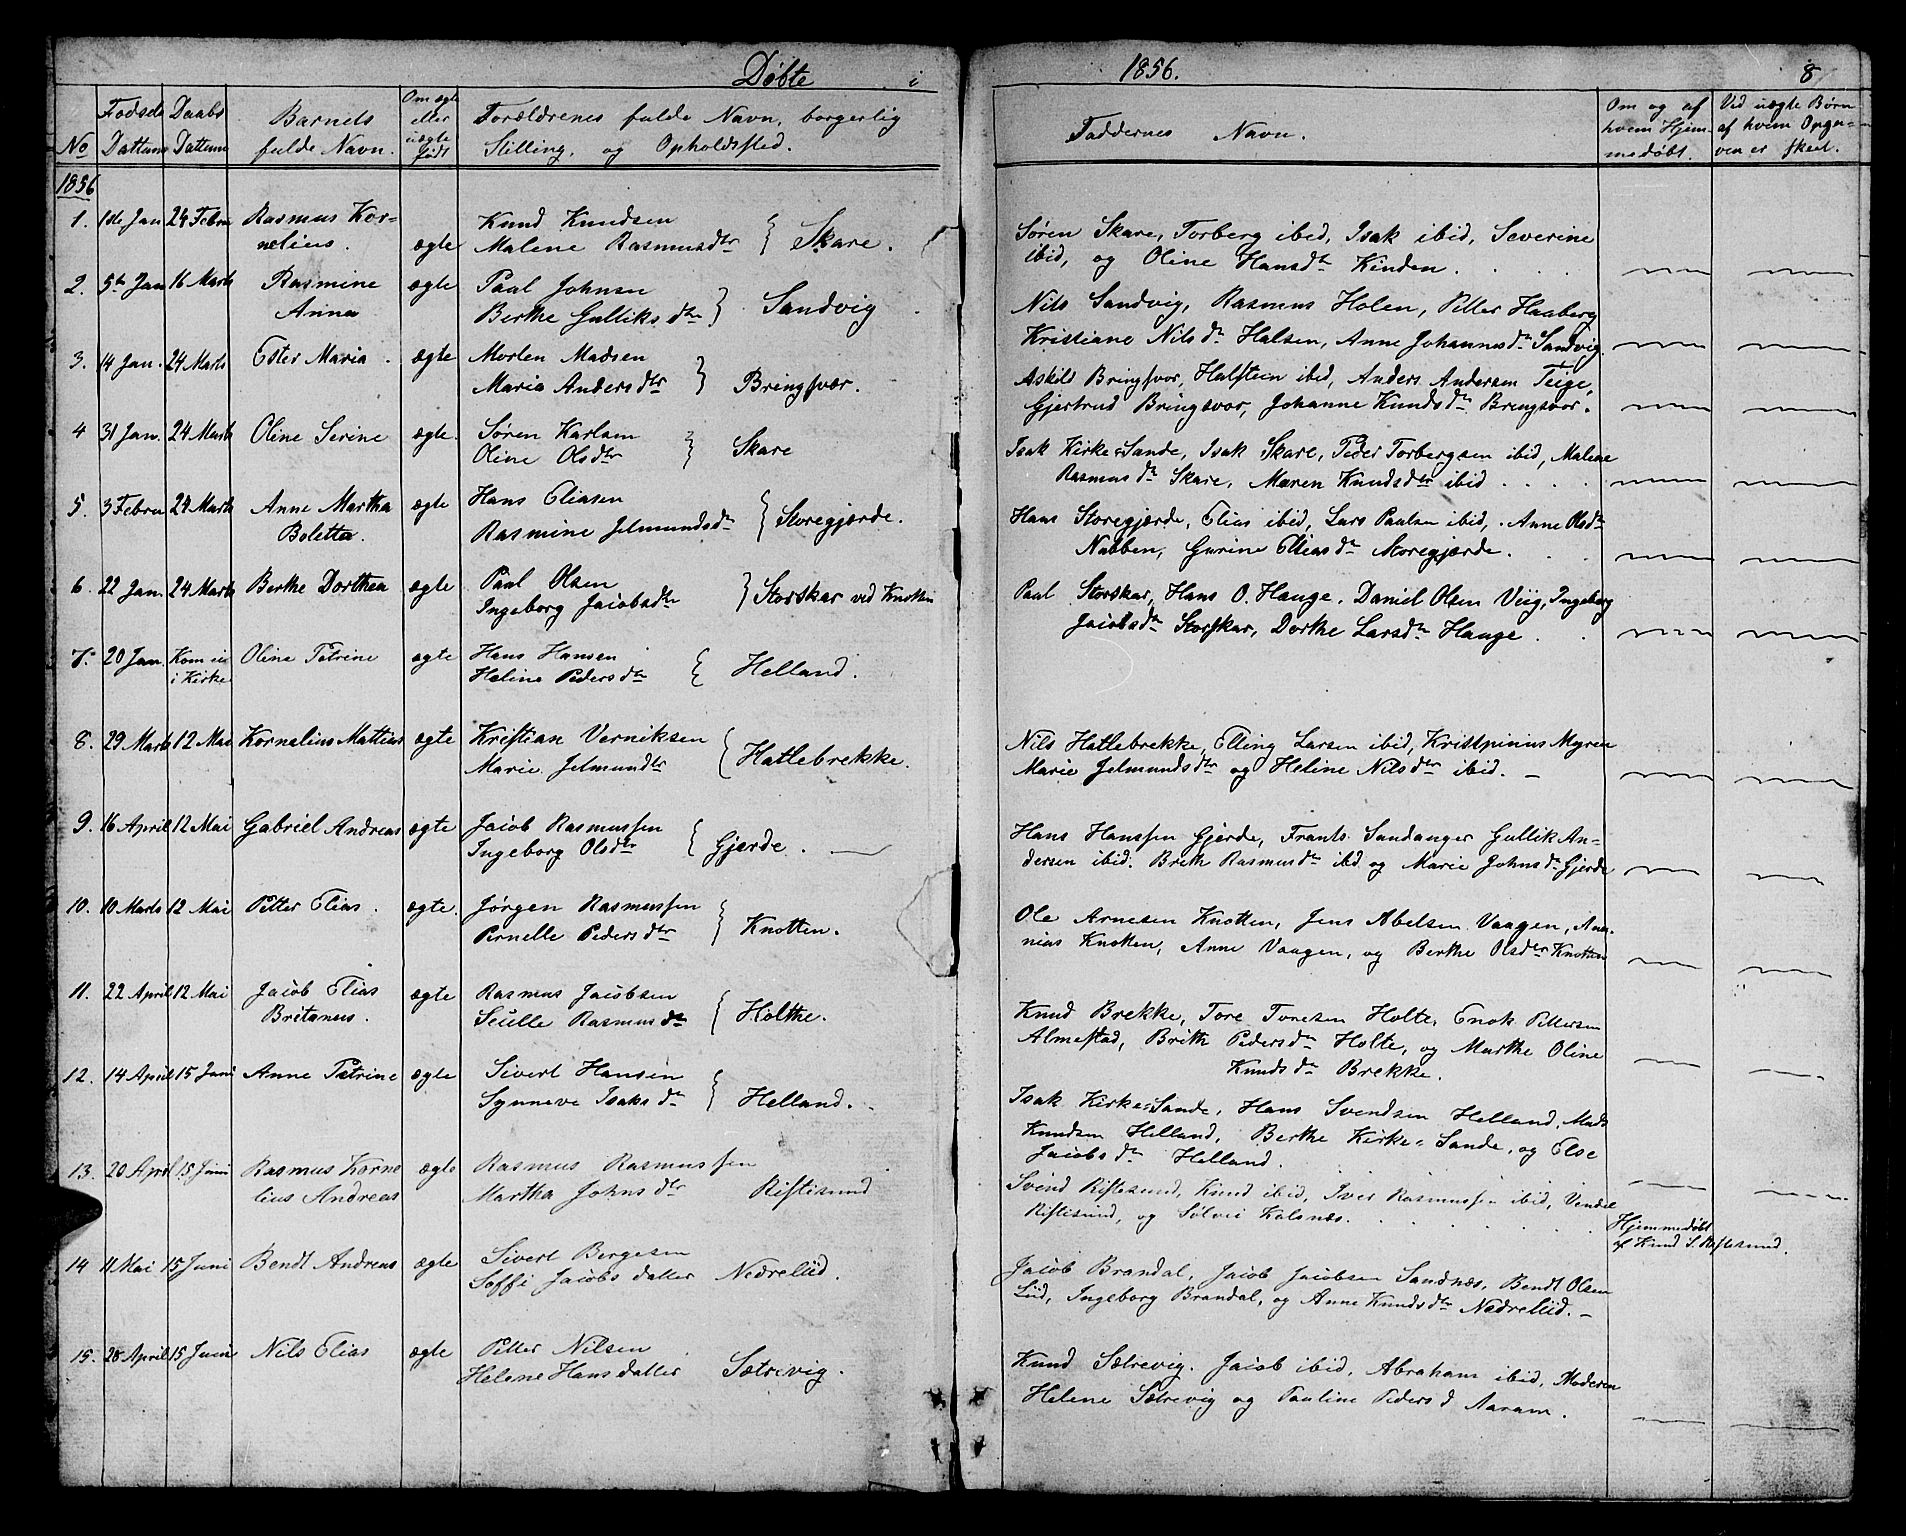 Døbte i 1856. 8
No
Fødsels Dattum
Daabs Dattum
Barnets fulde Navn.
Om ægte eller uægte født
Forældrenes fulde Navn, borgerlig Stilling, og Opholdsted.
Faddernes Navn.
Om og af hvem Hjemmedøbt.
Ved uægte Børn af hvem Opgaven er skeet.
1856
1. 1ste Jan 24 Febru Rasmus Kor=
nelius. ægte
Knud Knudsen
Malene Rasmusdtr } Skare.
Søren Skare, Torberg ibid, Isak ibid, Severine
ibid, og Oline Hansdtr Kinden.
2. 5te Jan 16 Marts Rasmine ægte
Anna
Paal Johnsen
Berthe Gulliksdtr } Sandvig
Nils Sandvig, Rasmus Holen, Petter Haaberg
Kristiane Nilsdtr Halsen, Anne Johannesdtr Sandvig.
3. 14 Jan. 24 Marts Ester Maria. ægte
Morten Madsen
Maria Andersdtr } Bringsvær.
Askild Bringsvor, Halstein ibid, Anders Andersen Teige,
Gjertrud Bringsvor, Johanne Knudsdtr Bringsvor.
4 31 Jan. 24 Marts Oline Serine ægte.
Søren Karlsen
Oline Olsdtr } Skare
Isak Kirke=Sande, Isak Skare, Peder Torbergsen ibid, Malene
Rasmusdtr Skare, Maren Knudsdtr ibid
5. 3 Febru 24 Marts Anne Martha ægte
Boletta.
Hans Eliasen
Rasmine Jelmundsdtr { Storegjærde.
Hans Storegjærde, Elias ibid, Lars Paulsen ibid, Anne Olsdtr
Nabben, Gurine Eliasdtr Storegjærde.
6. 22 Jan. 24 Marts Berthe Dorthea ægte
Paul Olsen
Ingeborg Jacobsdtr } Storskar ved Knotten
Paul Storskar, Hans O. Hauge, Daniel Olsen Viig, Ingeborg
Jacobsdtr Storskar, Dorthe Larsdtr Hauge.
7. 20 Jan. Kom ei Oline Petrine ægte
i Kirke
Hans Hansen
Heline Pedersdtr { Helland.
8. 29 Marts 12 Mai Kornelius Mattias ægte
Kristian Verniksen
Marie Jelmundtr { Hatlebrekke.
Nils Hatlebrekke, Elling Larsen ibid, Kristpinius Myren
Marie Jelmundsdtr og Heline Nilsdtr ibid.
9. 16 April 12 Mai Gabriel Andreas ægte
Jacob Rasmussen
Ingeborg Olsdtr { Gjerde.
Hans Hanssen Gjerde, Frants Sandanger Gullik An=
dersen ibid. Brith Rasmusdtr ibd og Marie Johnsdtr Gjerde
10. 10 Marts 12 Mai Petter Elias. ægte.
Jørgen Rasmussen
Pernelle Pedersdtr { Knotten.
Ole Arnesen Knotten, Jens Abelsen Vaagen, Ana=
nias Knotten, Anne Vaagen, og Berthe Olsdtr Knotten
11. 22 April 12 Mai Jacob Elias ægte
Britanus.
Rasmus Jacobsen
Sculle Rasmusdtr { Holthe.
Knud Brekke, Tore Toresen Holte, Enok Pettersen
Almestad, Brith Pedersdtr Holte, og Marthe Oline
Knudsdtr Brekke.
12. 14 April 15 Juni Anne Petrine ægte
Sivert Hansen
Synneve Isaksdtr { Helland.
Isak Kirke=Sande, Hans Svendsen Helland, Mads
Knudsen Helland, Berthe Kirke=Sande, og Else
Jacobsdtr Helland.
13. 20 April 15 Juni Rasmus Korne ægte
lius Andreas
Rasmus Rasmussen
Martha Johnsdtr Riftesund
Svend Riftesund, Knud ibid, Iver Rasmussen ibid, Vendel
Riftesund, og Sølvei Kalsnæs.
Hjemmedøbt
af Knud S. Riftesund.
14 11 Mai 15 Juni Bendt Andreas ægte
Sivert Bergesen
Soffi Jacobsdatter Nedreliid.
Jacob Brandal, Jacob Jacobsen Sandnæs, Bendt Olsen
Liid, Ingeborg Brandal, og Anne Knudsdtr Nedreliid.
15. 28 April 15 Juni Nils Elias ægte
Petter Nilsen
Helene Hansdatter Sætrevig.
Knud Sætrevig. Jacob ibid, Abraham ibid, Moderen
Helene Sætrevig og Pauline Pedersd Aaram.